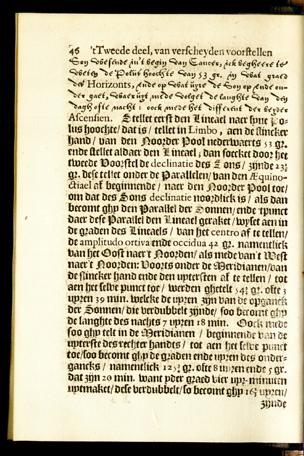 46 'tTweede deel, van verscheyden voorstellen
Son wesende in't begin van Cancer, ick begheere te
weten de Polus hoochte van 53 gr. in wat graed
des Horizonts, ende op wat uyre de Son op ende on-
der gaet, waer uyt mede volget de langhte van den
dagh ofte nacht: oock mede het different der rechter
Ascensien. Stellet eerst den Lineael naer syne Po-
lus hoochte/ dat is/ tellet in Limbo, aen de slincker
hand/ van den Noorder Pool nederwaerts 53 gr.
ende stellet aldaer den Lineael; dan soeckt door het
tweede Voorstel de declinatie des Sons/ zijnde 23½
gr. dese tellet onder de Parallelen/ van den Æquino-
ctiael af beginnende/ naer den Noorder Pool toe/
om dat des Sons declinatie noordlick is/ als dan
becomt ghy den Parallel der Sonnen; ende t'punct
daer dese Parallel den Lineael geraket/ wyset aen in
de graden des Lineaels/ van het centro af te tellen/
de amplitudo ortiva ende occidua 42 gr. namentlick
van het Oost naer't Noorden/ als mede van't West
naer't Noorden: Voorts onder de Meridianen/ van
de slincker hand ende den uptersten af te tellen/ tot
aen het selve punct toe/ werden ghetelt 54¾ gr. ofte 3
upren 39 min. welcke de upren zijn van de opganck
der Sonnen/ die verdubbelt zijnde/ soo becomt ghy
de langhte des nachts 7 upren 18 min. Oock mede
soo ghy telt in de Meridianen/ beginnende van de
upterste des rechter handes/ tot aen het selve punct
toe/ soo becomt ghy de graden ende upren des onder-
gancks/ namentlick 125¼ gr. ofte 8 upren ende 5 gr.
dat zijn 20 min. want yder graed vier upr-minuten
uptmaket/ dese verdubbelt/ so becomt ghy 16⅔ upren/
zijnde